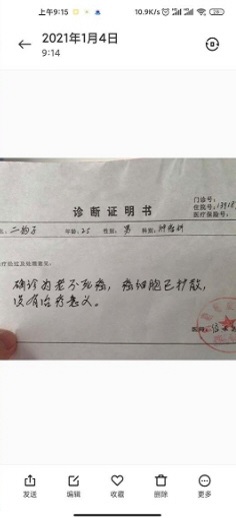 上午9:15
10.9K/s
2021年1月4日
9:14
门诊号:
住院号:
医疗保险号:
诊断证明书
二狗子 年龄: 25 性别: 男 科别: 肿瘤科
疗经过及处理意见:
确诊为老不死癌，癌细胞已扩散，
没有治疗意义。
发送 编辑 收藏 删除 更多